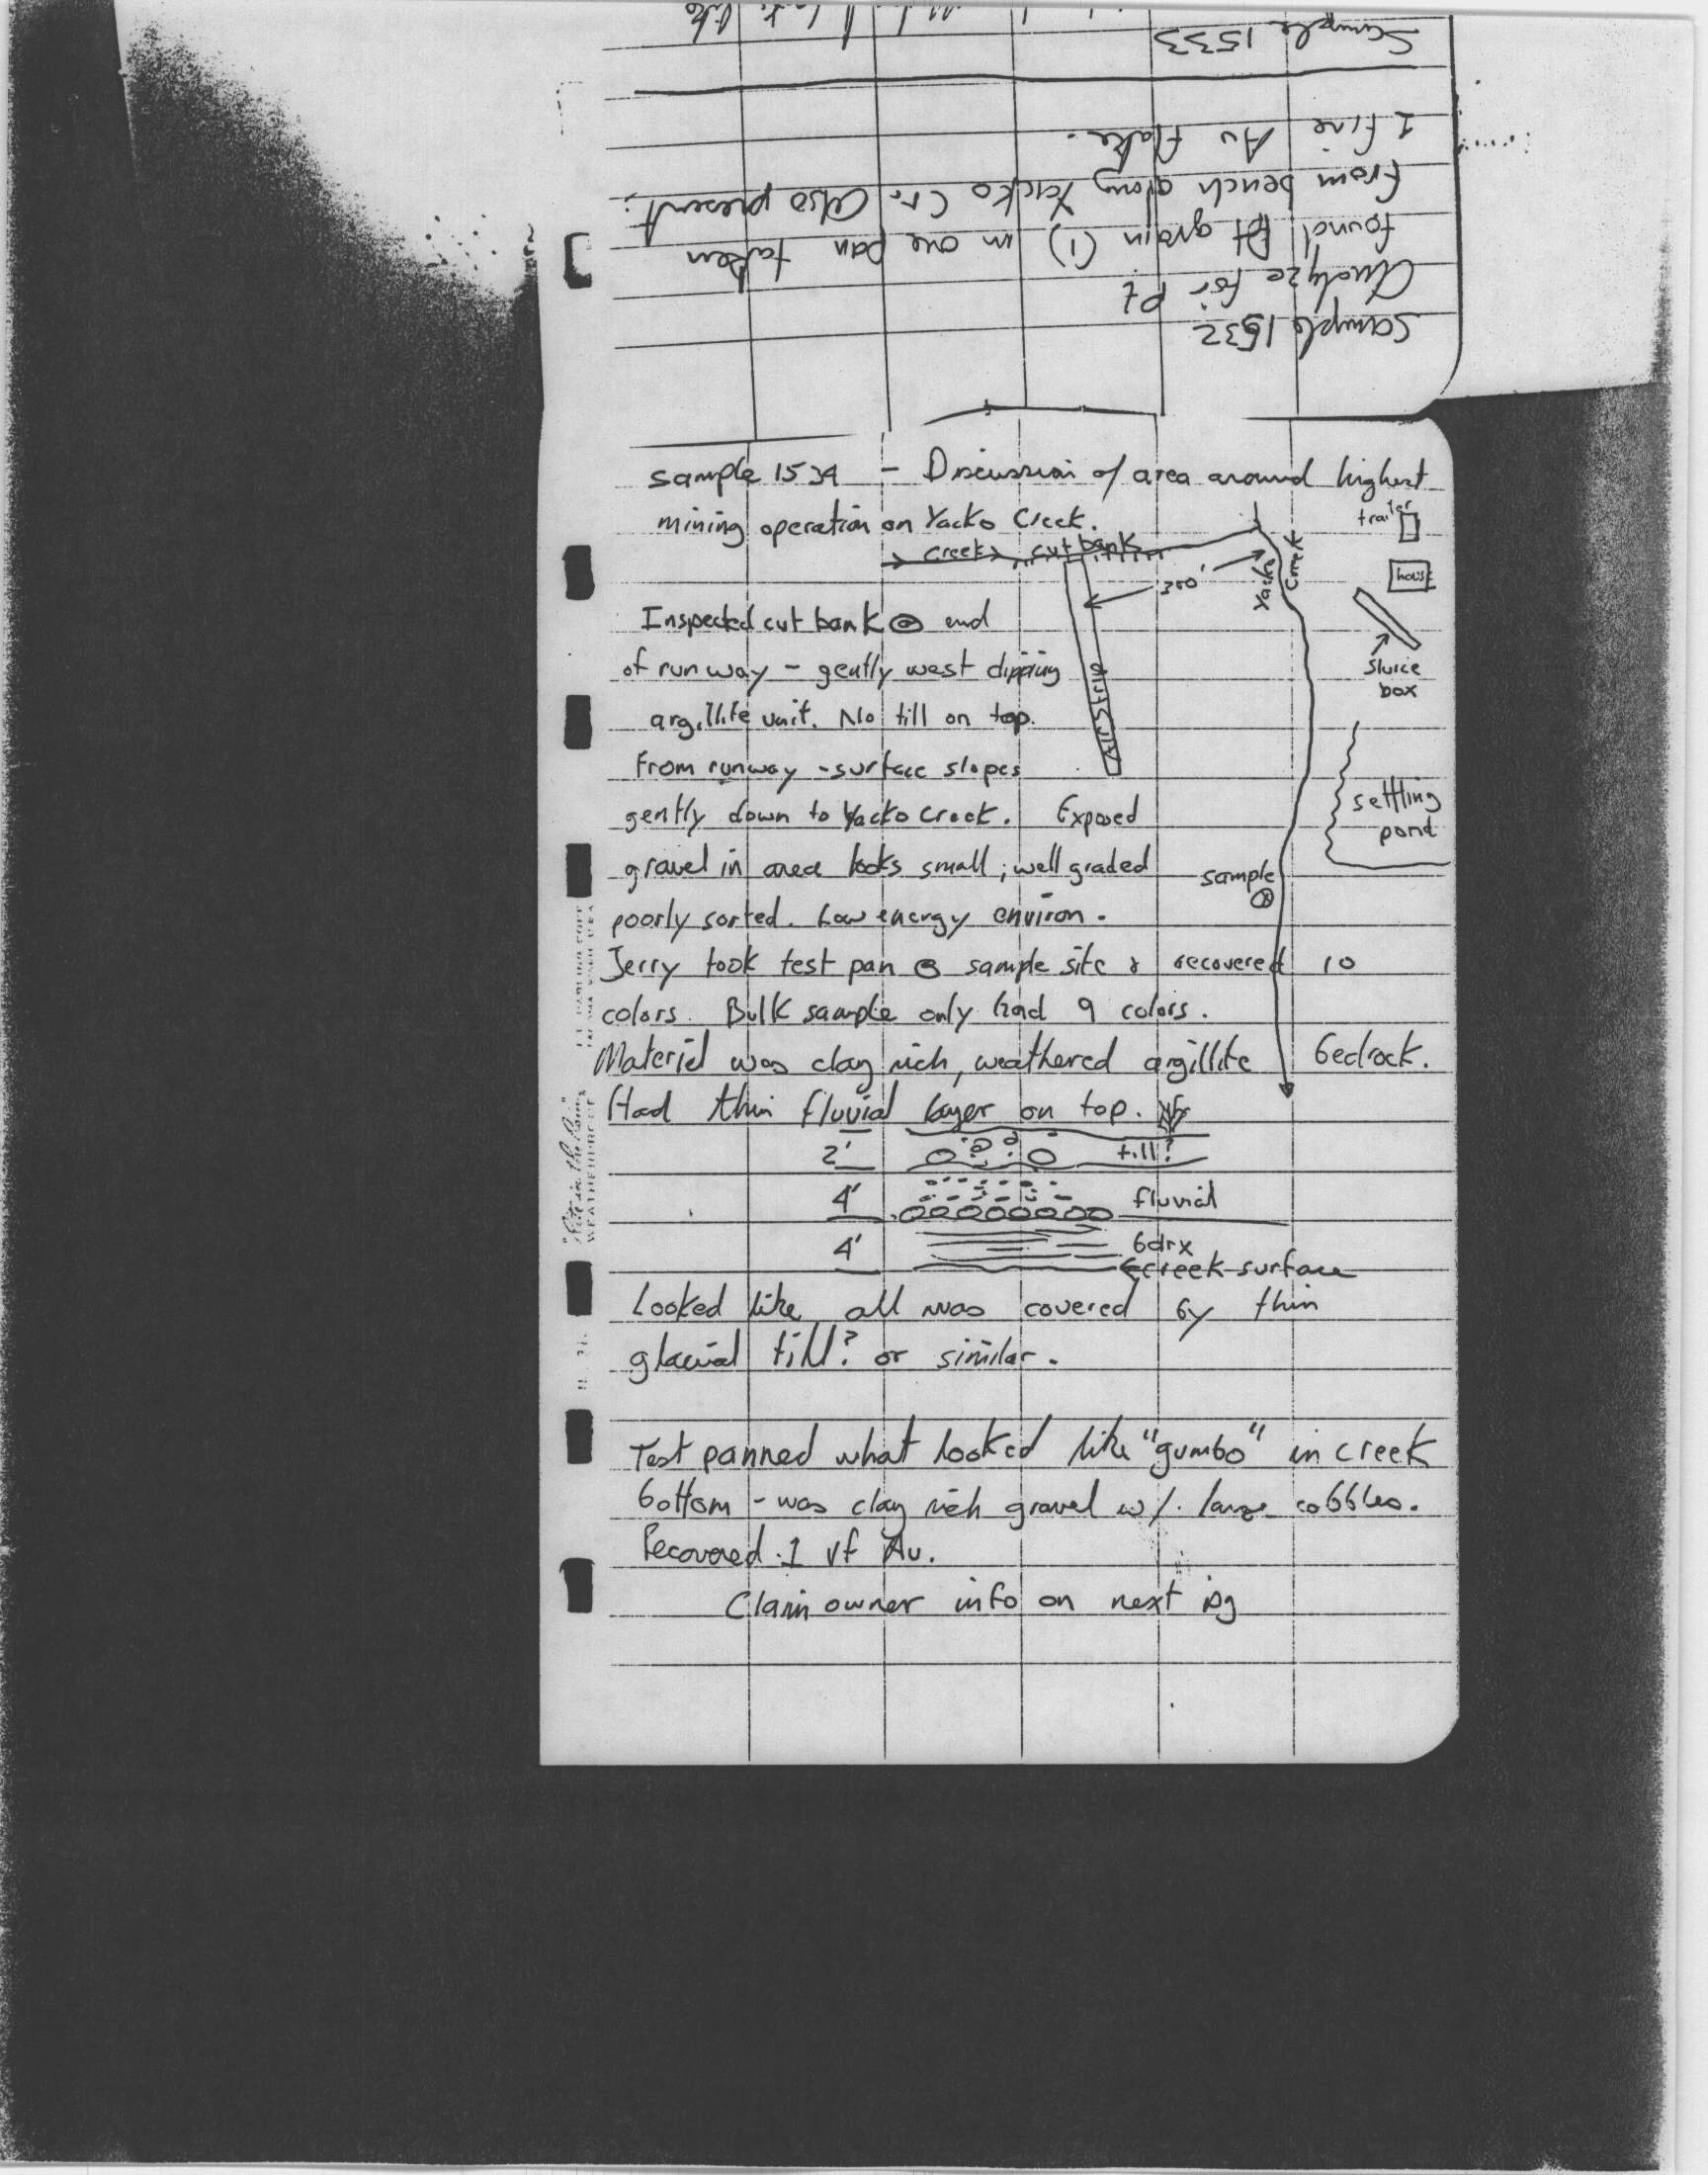 Sample 1533
Sample 1532
Analyze for Pt
found Pt grain (1) in one pan taken
from bench along Yacko Cr. Also present:
1 fine Au flake.
sample 1534 - Discussion of area around highest
mining operation on Yacko Creek.
trailer
creek cut bank
350'
Yacko Creek
house
Inspected cut bank @ end
of runway - gently west dipping
argillite unit. No till on top.
From runway - surface slopes
gently down to Yacko Creek. Exposed
gravel in area looks small; well graded
poorly sorted. Low energy environ.
Airstrip
Sluice
box
settling
pond
sample
Jerry took test pan @ sample site & recovered 10
colors. Bulk sample only had 9 colors.
Material was clay rich, weathered argillite bedrock.
Had thin fluvial layer on top.
2' till?
4' fluvial
4' bdrx
creek surface
Looked like all was covered by thin
glacial till? or similar.
Test panned what looked like "gumbo" in creek
bottom - was clay rich gravel w/. large cobbles.
Recovered 1 vf Au.
Claim owner info on next pg
"Rite in the Rain"